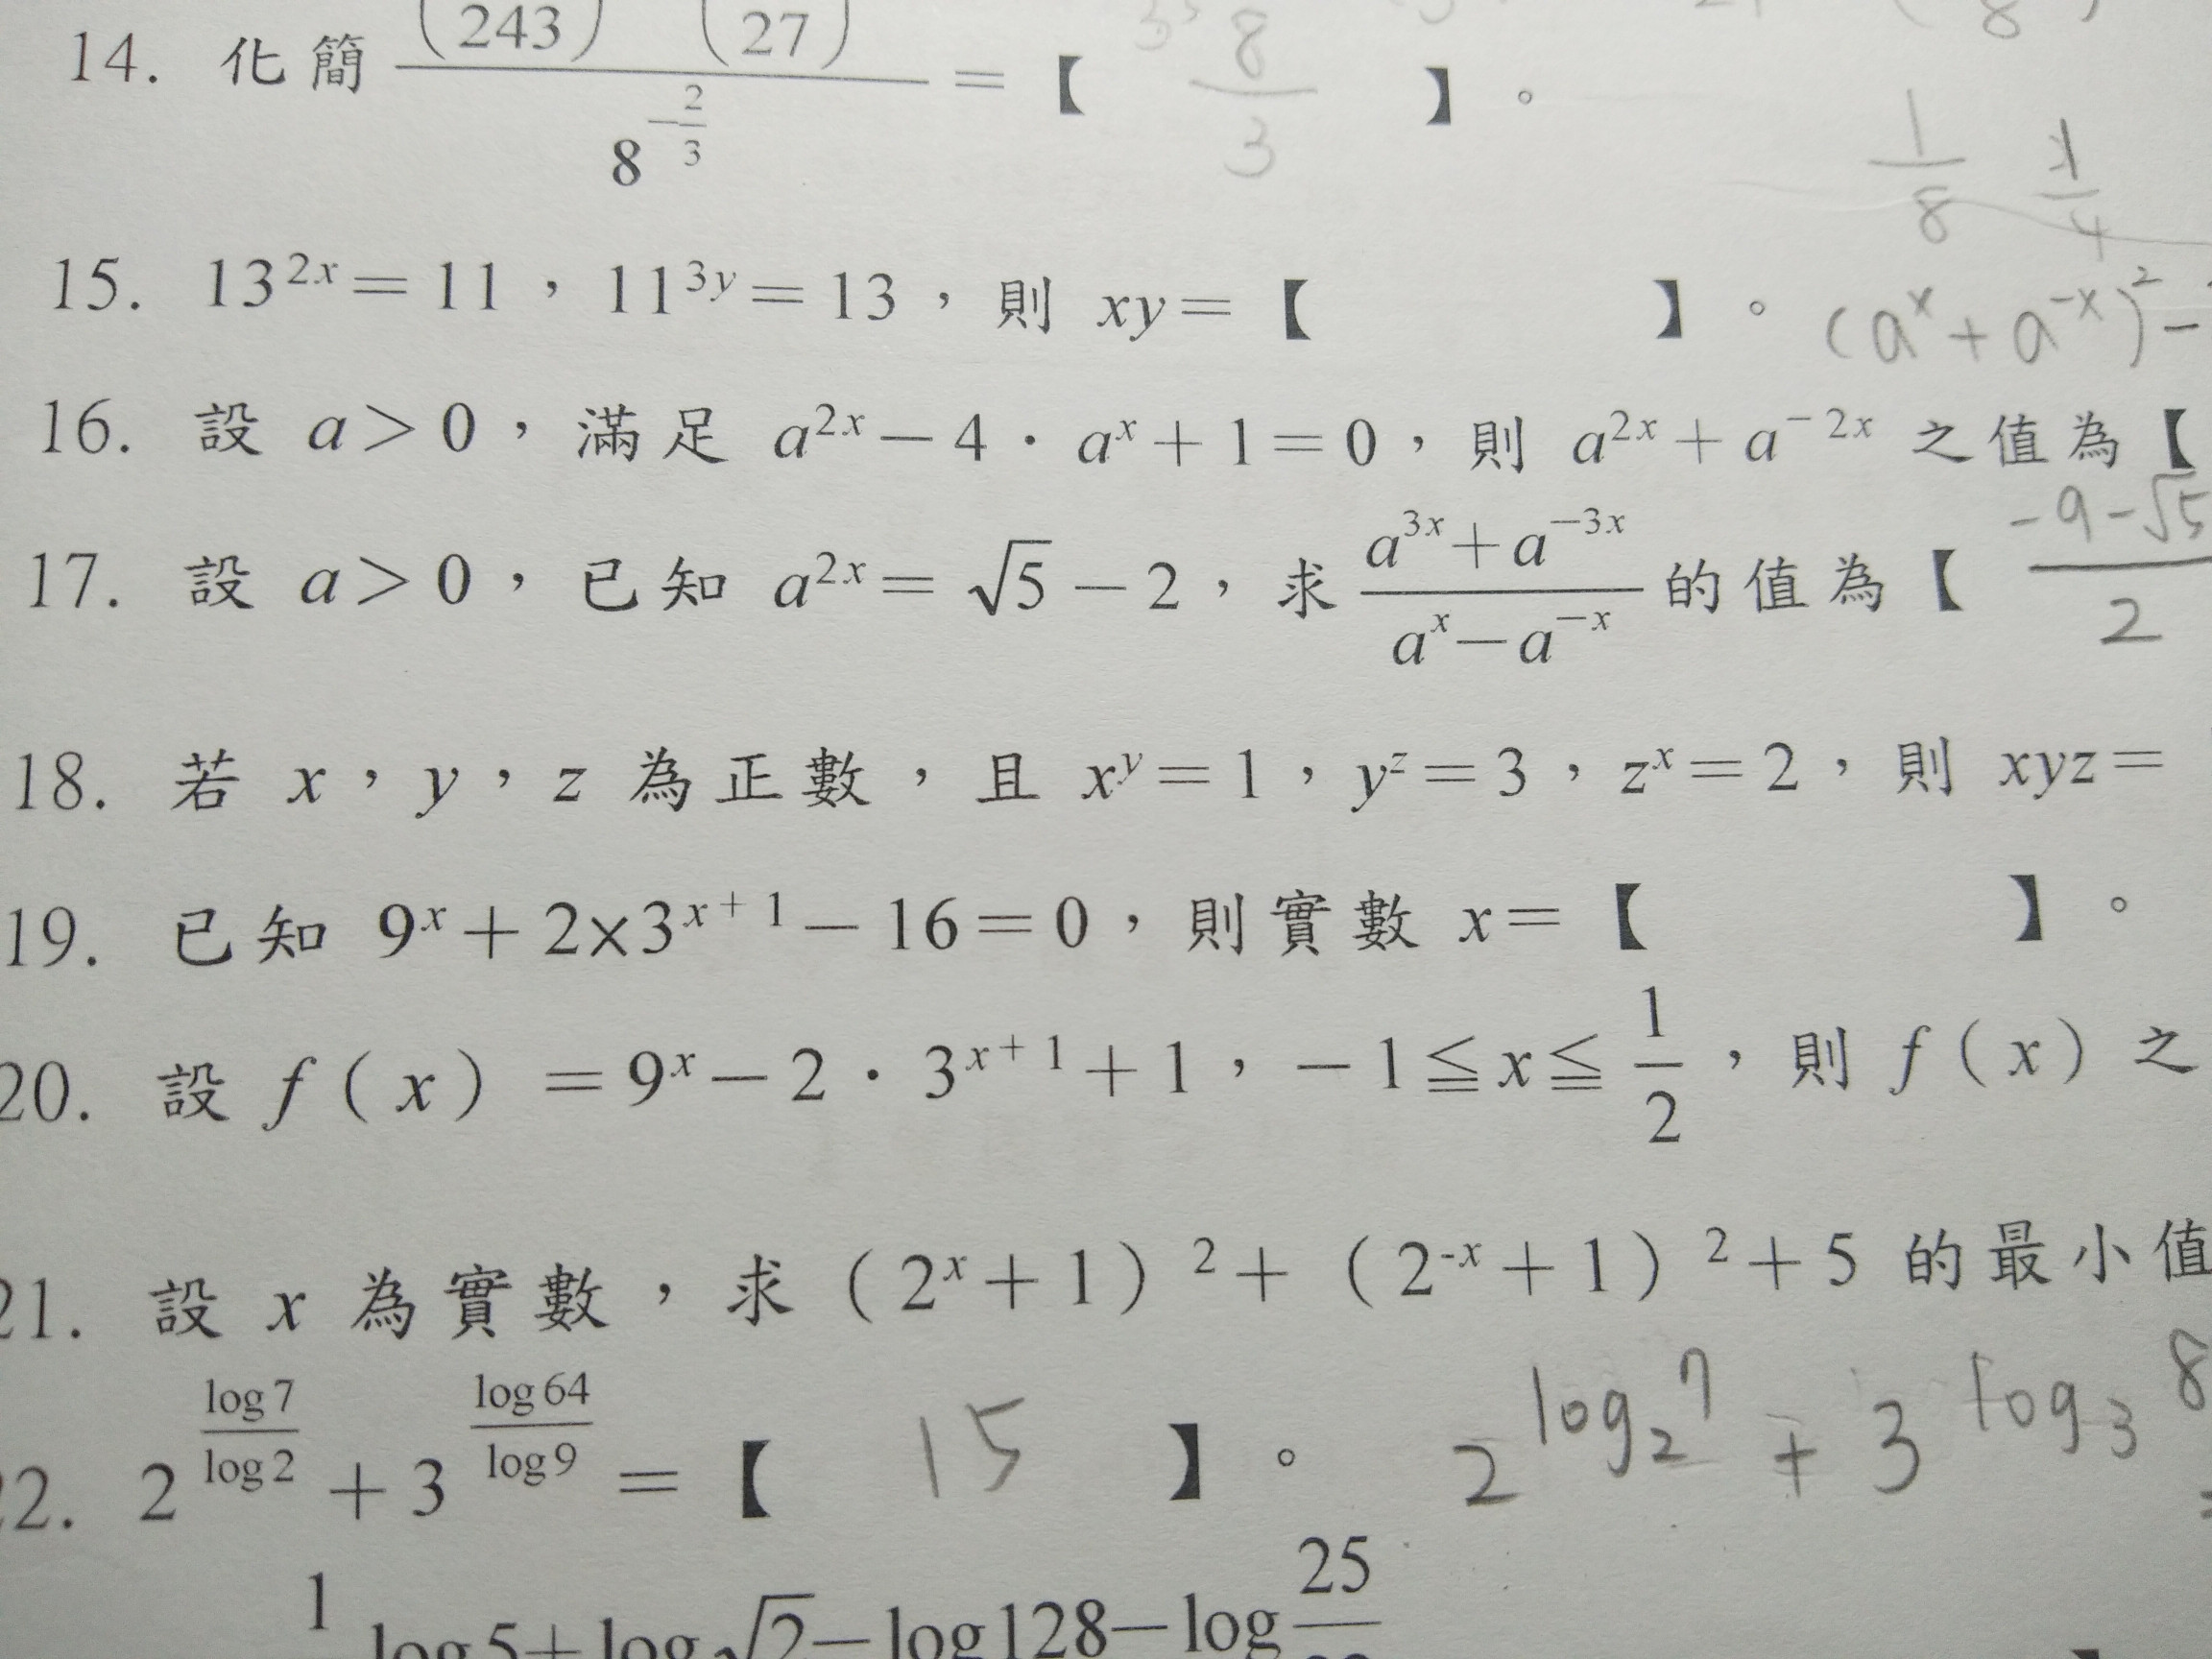 14. 化簡 (243) (27) / 8^(-2/3) = 【 8/3 】。
1/8 1/4
15. 13^(2x) = 11，11^(3y) = 13，則 xy = 【 】。 (a^x + a^(-x))^2 -
16. 設 a > 0，滿足 a^(2x) - 4 · a^x + 1 = 0，則 a^(2x) + a^(-2x) 之值為【
17. 設 a > 0，已知 a^(2x) = √5 - 2，求 (a^(3x) + a^(-3x)) / (a^x - a^(-x)) 的值為【 (-9-√5)/2
18. 若 x，y，z 為正數，且 x^y = 1，y^z = 3，z^x = 2，則 xyz =
19. 已知 9^x + 2×3^(x+1) - 16 = 0，則實數 x = 【 】。
20. 設 f(x) = 9^x - 2 · 3^(x+1) + 1，-1 ≦ x ≦ 1/2，則 f(x) 之
21. 設 x 為實數，求 (2^x + 1)^2 + (2^(-x) + 1)^2 + 5 的最小值
22. 2^(log7/log2) + 3^(log64/log9) = 【 15 】。 2^(log₂7) + 3^(log₃8)
1 log5 + log√2 - log128 - log 25